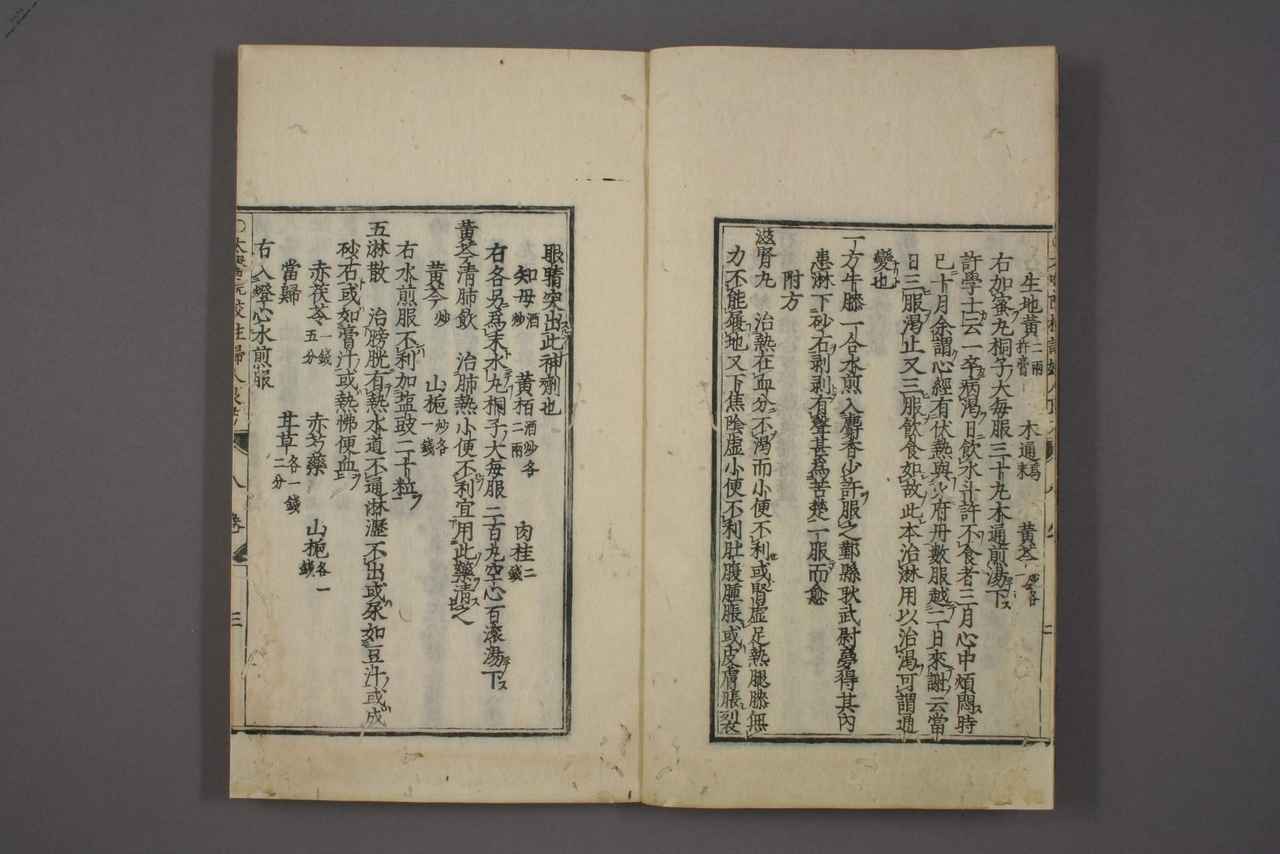 生地黄二兩杵膏　木通　黄芩各
右加蜜丸桐子大每服三十丸木通煎湯下
許學士云一卒病渴日飲水斗許不食者三月心中煩悶時
已十月余謂心經有伏熱與火府丹數服越二日來謝云當
日三服渴止又三服飲食如故此本治淋用以治渴可謂通
變也
一方牛膝一合水煎入麝香少許服之鄞縣耿武尉夢得其內
患淋下砂石剥剥有聲甚為苦楚一服而愈
附方
滋腎丸　治熱在血分不渴而小便不利或腎虛足熱腿膝無
力不能履地又下焦陰虛小便不利肚腹腫脹或皮膚脹裂
眼睛突出此神劑也
知母酒炒　黄栢酒炒各二兩　肉桂二錢
右各另為末水丸桐子大每服二百丸空心百滾湯下
黄芩清肺飲　治肺熱小便不利宜用此藥清之
黄芩炒　山梔炒各一錢
右水煎服不利加塩豉二十粒
五淋散　治膀胱有熱水道不通淋瀝不出或尿如豆汁或成
砂石或如膏汁或熱怫便血
赤茯苓一錢五分　赤芍藥　山梔各一錢
當歸　甘草各一錢二分
右入燈心水煎服
八卷
三